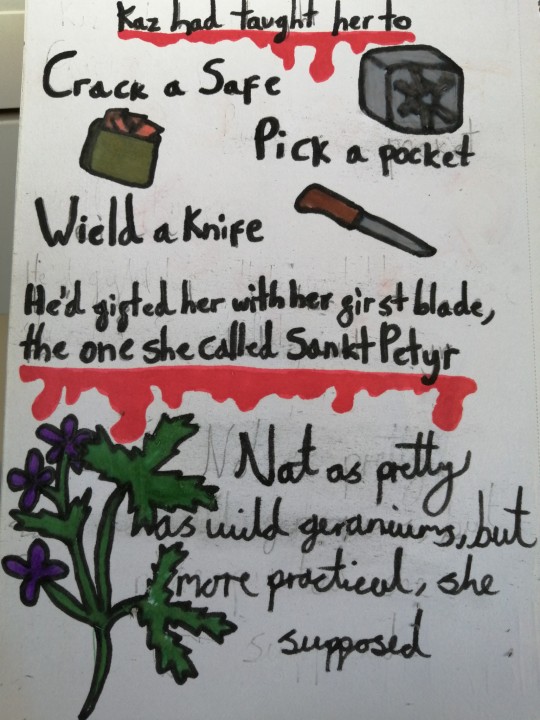 Kaz had taught her to
Crack a Safe
Pick a pocket
Wield a Knife
He'd gifted her with her girst blade,
the one she called Sankt Petyr
Not as pretty
as wild geraniums, but
more practical, she
supposed